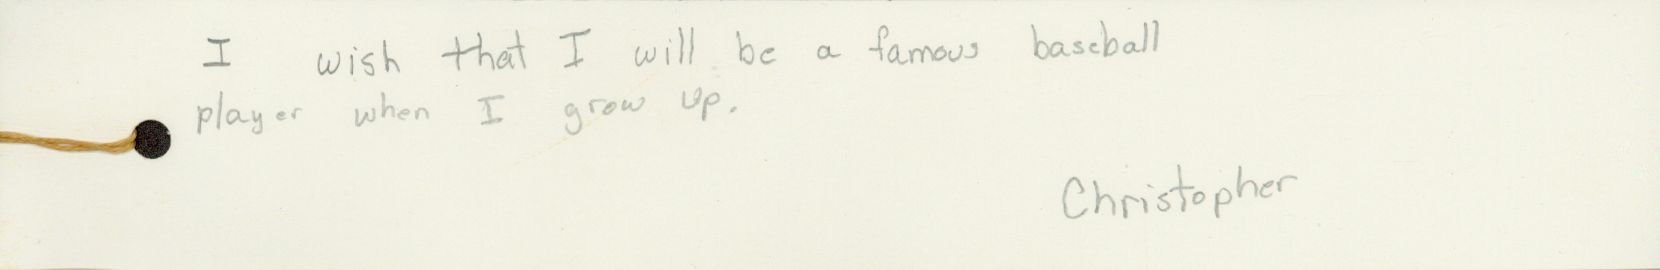 I wish that I will be a famous baseball
player when I grow up.
Christopher